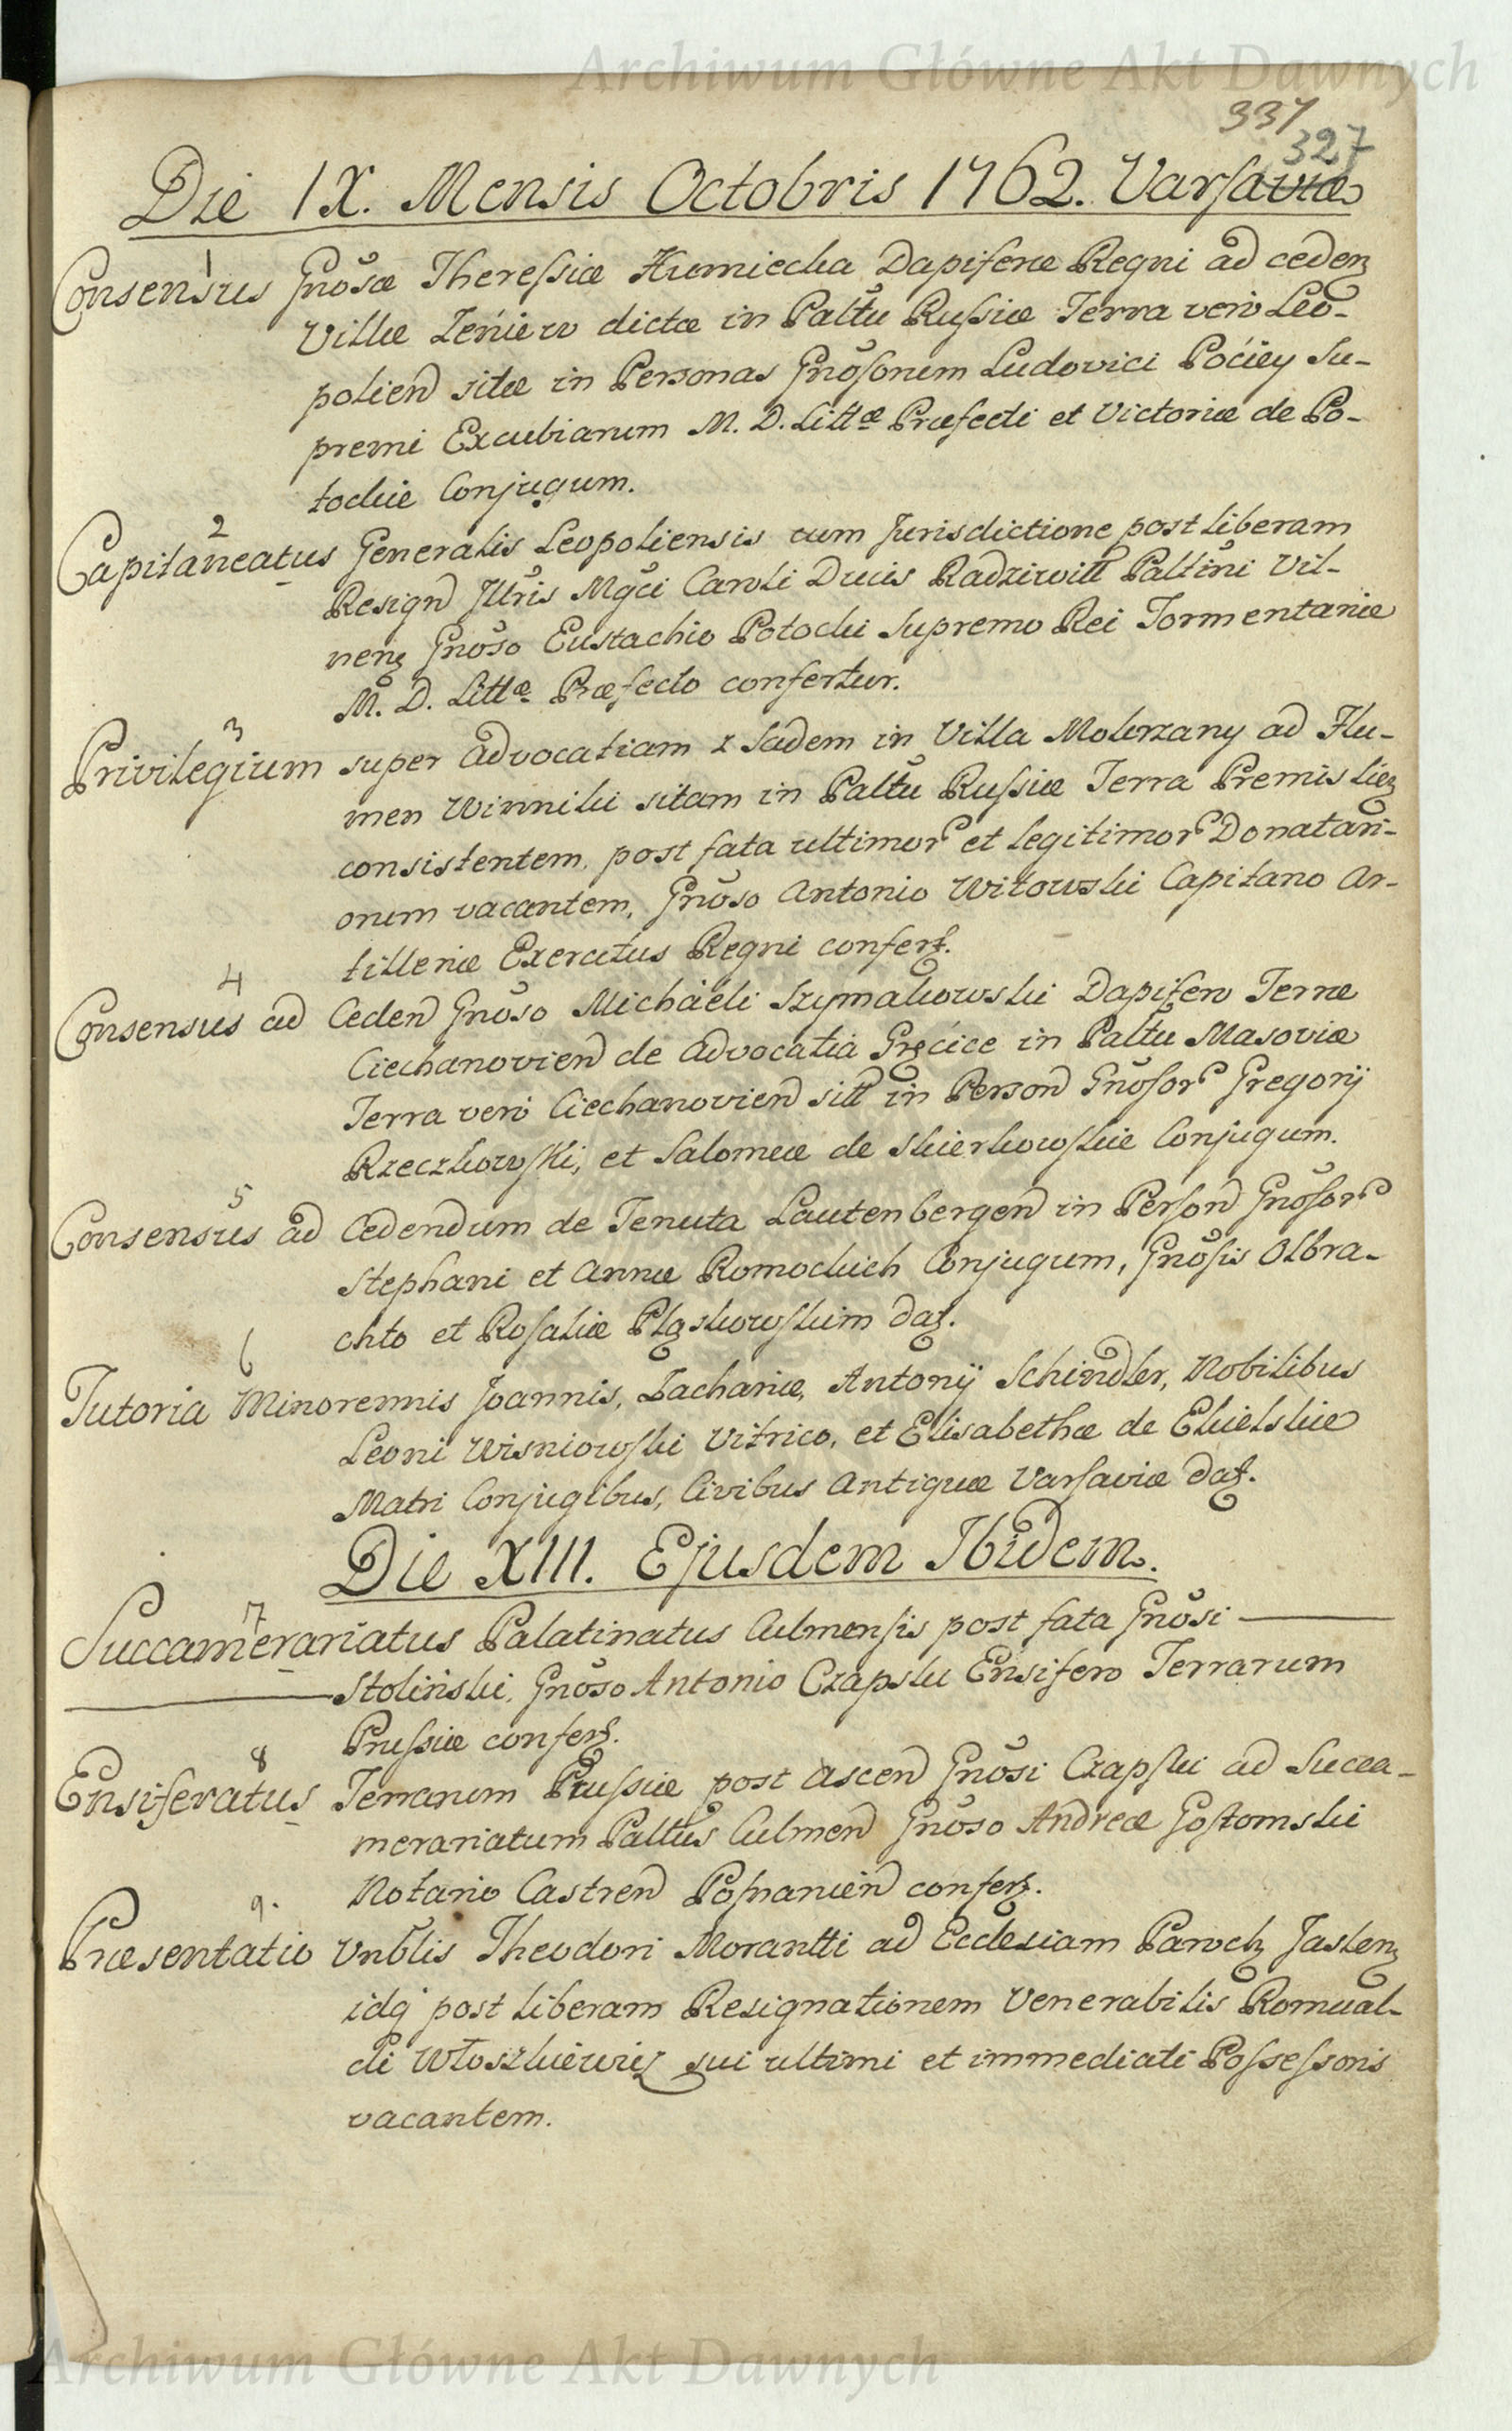 Archiwum Główne Akt Dawnych
337
327
Die IX. Mensis Octobris 1762. Varsaviæ
1
Consensus Gnosæ Theressiæ Humiecka Dapiferæ Regni ad cedenz
Villæ Zeniew dictæ in Palttu Russiæ Terra vero Leo-
polien sitæ in Personas Gnosorum Ludovici Pociey Su-
premi Excubiarum M. D. Littæ Præfecti et Victoriæ de Po-
tockie Conjugum.
2
Capitaneatus Generalis Leopoliensis cum Jurisdictione post liberam
Resign Illris Mgci Caroli Ducis Radziwiłł Paltini Vil-
nenz Gnoso Eustachio Potocki Supremo Rei Tormentariæ
M. D. Littæ Præfecto confertur.
3
Privilegium super advocatiam 1 Sadem in Villa Mokrzany ad Flu-
men Winniki sitam in Palttu Russiæ Terra Premislienz
consistentem, post fata ultimor et legitimor Donatari-
orum vacantem, Gnoso Antonio Witowski Capitano Ar-
tilleriæ Exercitus Regni conferz.
4
Consensus ad Ceden Gnoso Michaeli Szymakowski Dapifero Terræ
Ciechanovien de advocatia Gręcice in Palttu Masoviæ
Terra vero Ciechanovien sitt in Person Gnosor Gregorij
Rzeczkowski, et Salomeæ de Skierkowskie Conjugum.
5
Consensus ad Cedendum de Tenuta Lautenbergen in Person Gnosor
Stephani et Annæ Romockich Conjugum, Gnosis Olbra-
chto et Rosaliæ Pląskowskim daz.
6
Tutoria Minorennis Joannis, Zachariæ, Antonij Schindler, Nobilibus
Leoni Wisniowski Vitrico, et Elisabethæ de Ekielskie
Matri Conjugibus, Civibus Antiquæ Varsaviæ daz.
Die XIII. Ejusdem Ibidem.
7
Succamerariatus Palatinatus Culmensis post fata Gnosi
Stolinski, Gnoso Antonio Czapski Ensifero Terrarum
Prussiæ conferz.
8
Ensiferatus Terrarum Prussiæ post ascen Gnosi Czapski ad Succa-
merariatum Palttus Culmen Gnoso Andreæ Gostomski
Notario Castren Posnanien conferz.
9.
Præsentatio Vnblis Theodori Morantti ad Ecclesiam Paroch Jaslenz
idq post liberam Resignationem Venerabilis Romual-
di Włoszkiewicz sui ultimi et immediati Possessoris
vacantem.
Archiwum Główne Akt Dawnych